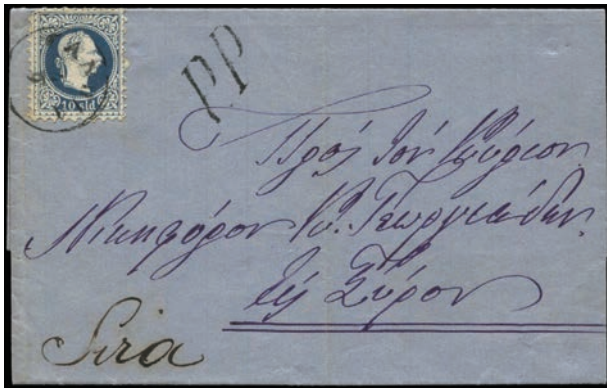 10 sld
PP
Πρὸς τὸν Κύριον
Νικηφόρον Κ. Γεωργιάδην
Εἰς Σύρον
Sira